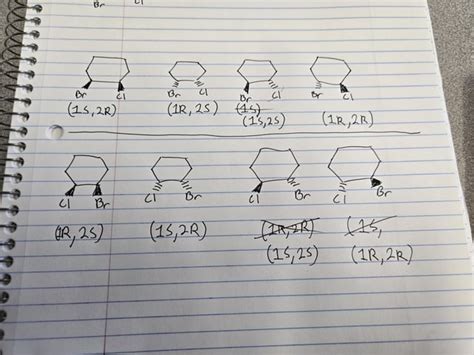 Br Cl
Br Cl Br Cl Br Cl Br Cl
(1S,2R) (1R,2S) (1S) (1R,2R)
(1S,2S)
Cl Br Cl Br Cl Br Cl Br
(1R,2S) (1S,2R) (1R,2R) (1S,
(1S,2S) (1R,2R)